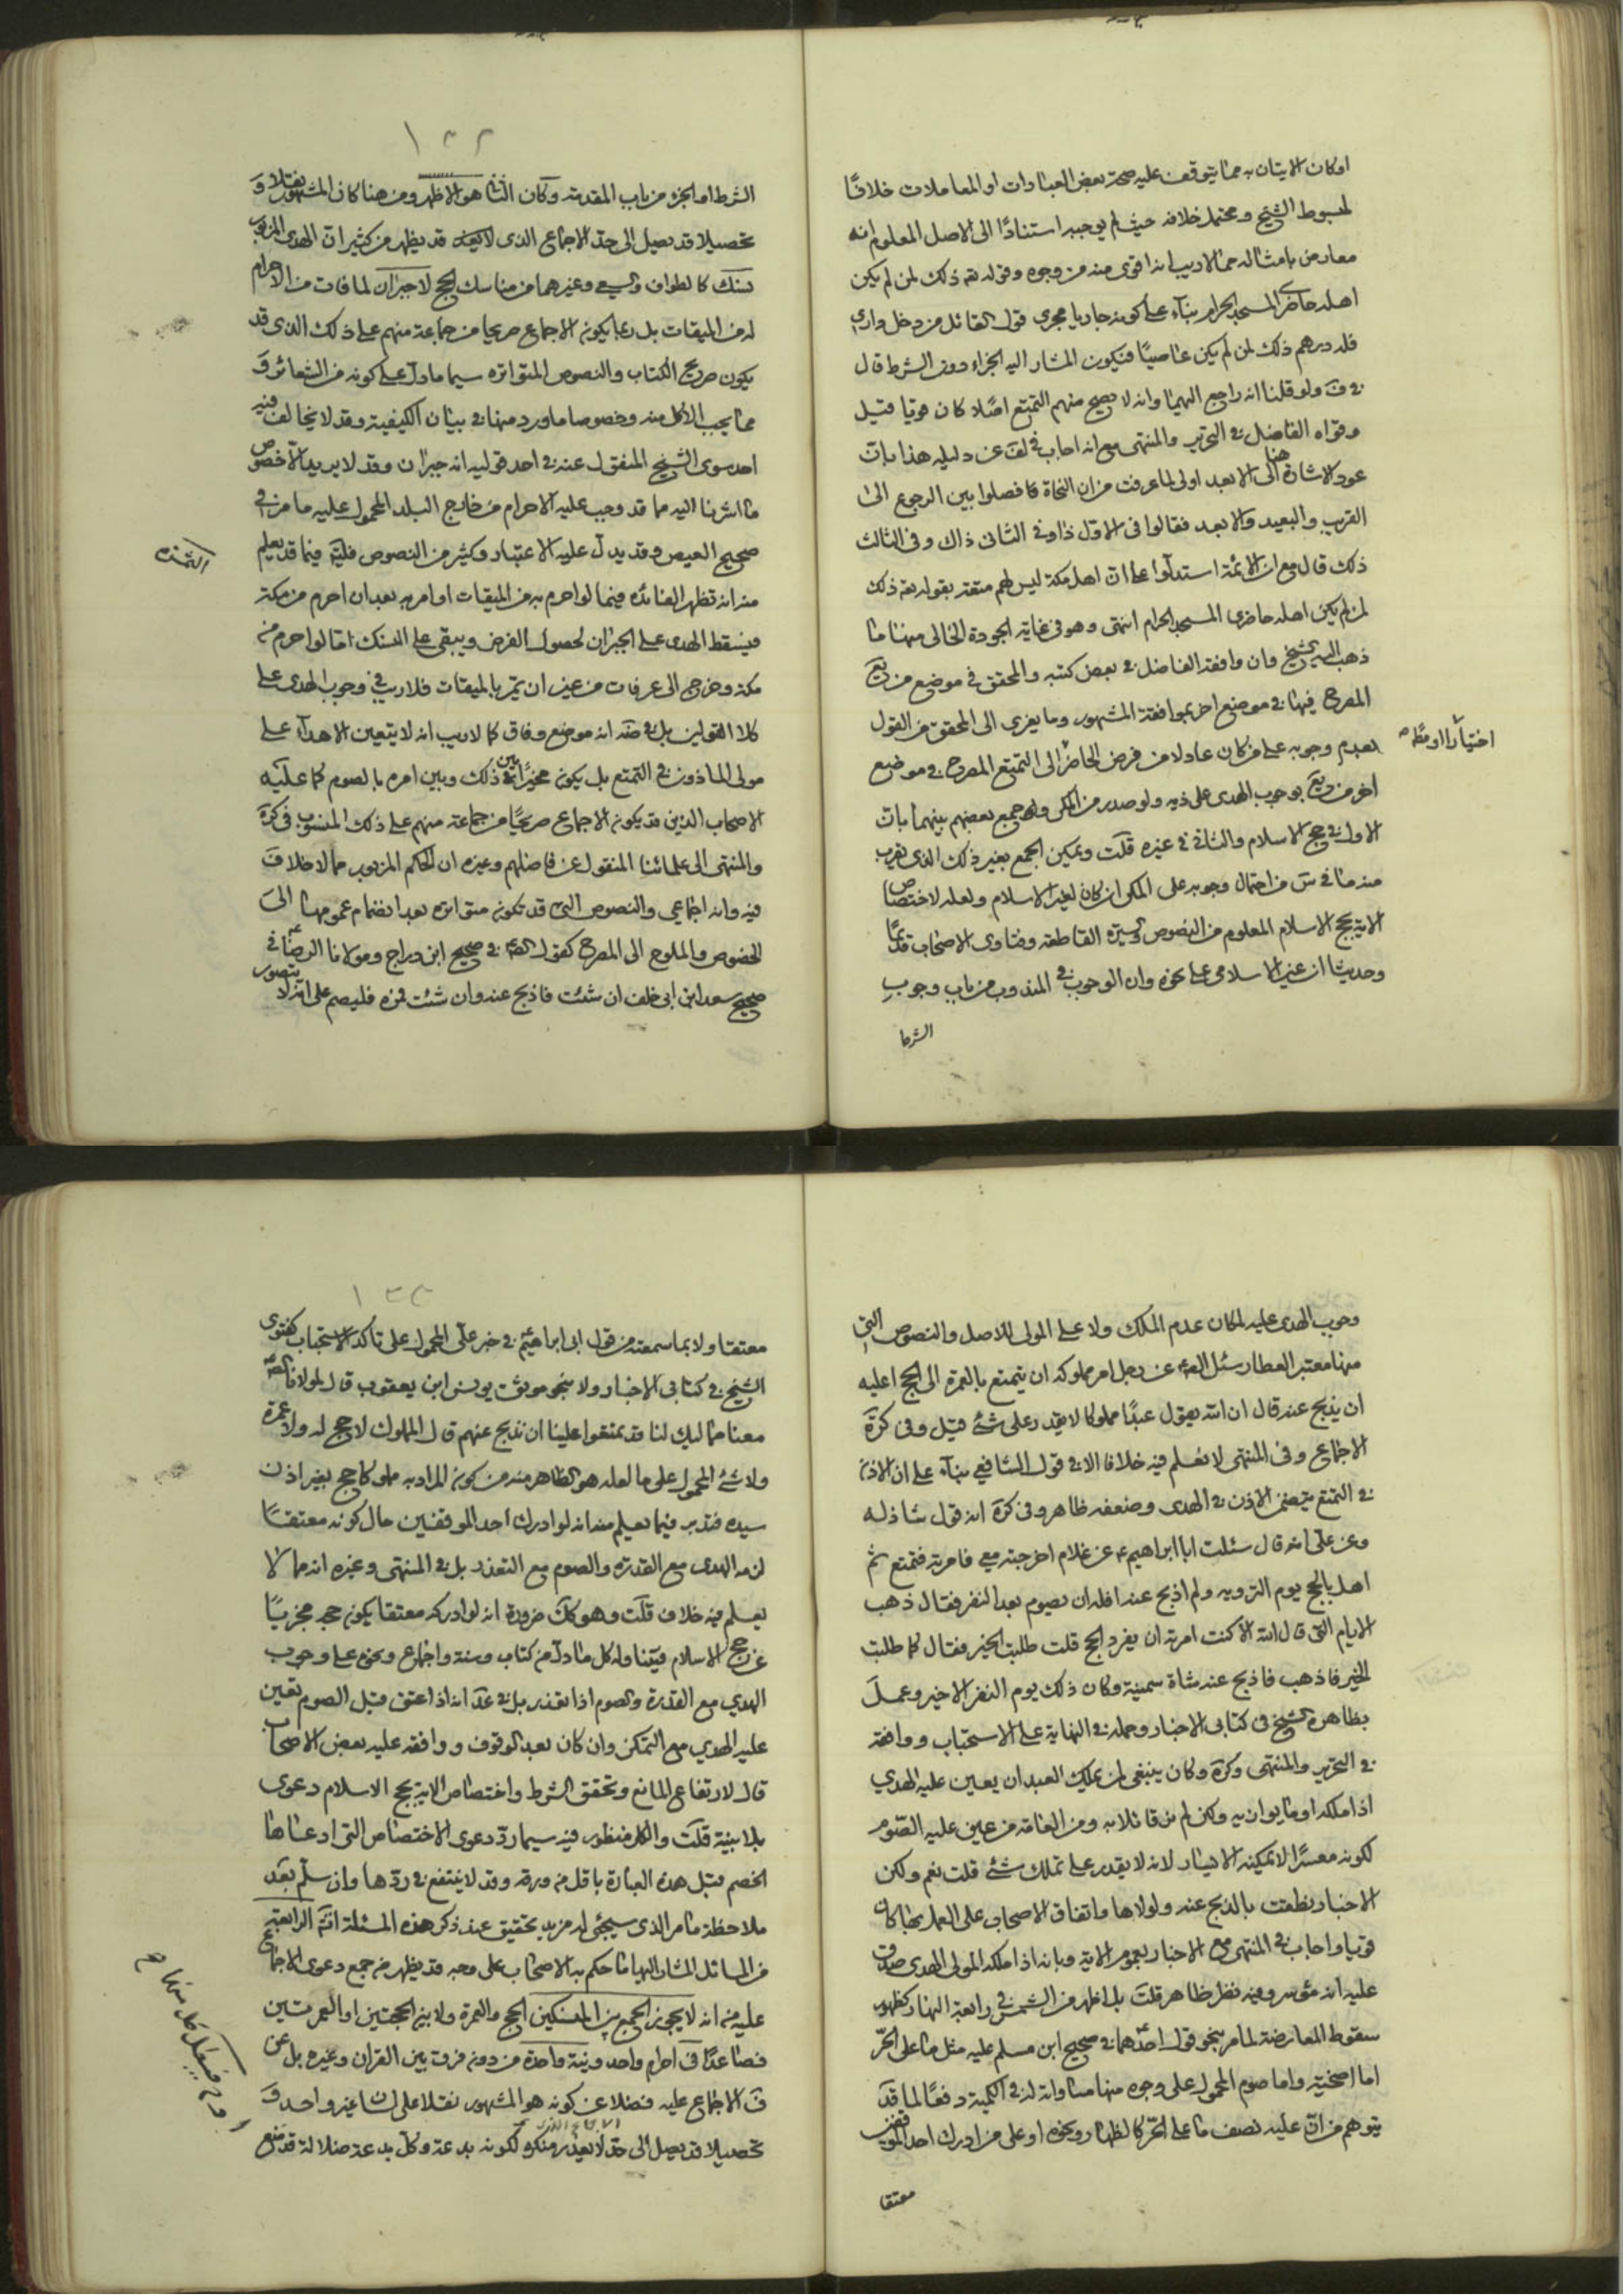 اوكان الاتيان به مما يتوقف عليه صحة بعض العبادات او المعاملات خلافًا
لمبسوط الشيخ ومحتمل خلافه حيث لم يوجبه استنادًا الى الاصل المعلوم انه
معارض بامثاله مما لا ريب انه اقوى منه من وجوه وقوله تعه ذلك لمن لم يكن
اهله حاضرى المسجد الحرام بناء على كونه جاريا مجرى قول القائل من دخل دارى
فله درهم ذلك لمن لم يكن عاصيًا فيكون المشار اليه الجزاء دون الشرط قال
فى ف ولو قلنا انه راجع اليهما وانه لا يصح منهم التمتع اصلا كان قويا قيل
وقواه الفاضل فى التحرير والمنتهى مع انه اجاب فى لف عن دليله هذا بان
عود الاشارة هنا الى الابعد اولى لما عرفت من ان النحاة فصلوا بين الرجوع الى
القريب والبعيد والابعد فقالوا فى الاول ذا وفى الثانى ذاك وفى الثالث
ذلك قال مع ان الائمة استدلوا على ان اهل مكة ليس لهم متعة بقوله تعه ذلك
لمن لم يكن اهله حاضرى المسجد الحرام انتهى وهو فى غاية الجودة الخالى منها ما
ذهب اليه الشيخ وان وافقه الفاضل فى بعض كتبه والمحقق فى موضع من يع
المصرح فيها فى موضع اخر بموافقة المشهور وما يعزى الى المحقق من القول
بعدم وجوبه على من كان عادلا من فرض الحاضر الى التمتع المصرح فى موضع
اختيارا او مط
اخر من يع بوجوب الهدى على ذيه ولو صدر من المكى ولعله جمع بعضهم بينهما بان
الاول فى حج الاسلام والثانى فى غيره قلت ويمكن الجمع بغير ذلك الذى يقرب
منه ما فى س من احتمال وجوبه على المكى ان كان لغير الاسلام ولعله لاختصاص
الاية بحج الاسلام المعلوم من النصوص والسيرة القاطعة وفتاوى الاصحاب قديمًا
وحديثا ان غير الاسلامى على نحوه وان الوجوب فى المندوب من باب وجوب
الشرط
١٣٢
الشرط او الجزء من باب المقدمة وكان الثانى هو الاظهر ومن هنا كان المشهور نقلا و
تحصيلا قد يصل الى حد الاجماع الذى لا قد يظهر من كثير ان الهدى المزبور
نسك كالطواف والسعى وغيرهما من مناسك الحج لا جبران لما فات من الاحرام
له من الميقات بل ربما يكون الاجماع صريحا من جماعة منهم على ذلك الذى قد
يكون صريح الكتاب والنصوص المتواترة سيما ما دل على كونه من الشعائر و
مما يجب الاكل منه وخصوصا ما ورد منها فى بيان الكيفية وقد لا يخالف فيه
احد سوى الشيخ المنقول عنه فى احد قوليه انه جبران وقد لا يريد الاخصوص
ما اشرنا اليه مما قد وجب عليه الاحرام من خارج البلد المحمول عليه ما مر فى
صحيح العيص وقد يدل عليه الاعتبار وكثير من النصوص فليته فيما قد يعلم
الثمرة
منه انه تظهر الفائدة فيما لو احرم به من الميقات او امر به بعد ان احرم من مكة
فيسقط الهدى على الجبران لحصول الفرض ويبقى على النسك اما لو احرم من
مكة وخرج الى عرفات من غير ان يمر بالميقات فلا ريب فى وجوب الهدى على
كلا القولين بل فى ضه انه موضع وفاق كما لا ريب انه لا يتعين الاهداء على
مولى الماذون فى التمتع بل يكون مخيرًا بين ذلك وبين امره بالصوم كما عليه
الاصحاب الذين قد يكون الاجماع صريحًا من جماعة منهم على ذلك المنسوب فى كرة
والمنتهى الى علمائنا المنقول عن فاضلهم وغيره ان الحكم المزبور مما لا خلاف
فيه وانه اجماعى والنصوص التى قد تكون متواترة بعد انضمام عمومها الى
الخصوص والملوح الى المصرح كقول الصم فى صحيح ابن دراج ومولانا الرضا فى
صحيح سعد ابن ابى خلف ان شئت فاذبح عنه وان شئت فمره فليصم على انه لا يتصور
وجوب الهدى عليه لمكان عدم الملك ولا على المولى للاصل والنصوص التى
منها معتبر العطار سئل الصم عن رجل امر مملوكه ان يتمتع بالعمرة الى الحج اعليه
ان يذبح عنه قال ان الله يقول عبدًا مملوكا لا يقدر على شئ قيل وفى كرة
الاجماع وفى المنتهى لا نعلم فيه خلافا الا فى قول الشافعى بناء على ان الاذن
فى التمتع يتضمن الاذن فى الهدى وضعفه ظاهر وفى كرة انه قول شاذ له
وعن على انه قال سئلت ابا ابراهيم ع عن غلام اخرجته معى فامرته فتمتع ثم
اهل بالحج يوم التروية ولم اذبح عنه افله ان يصوم بعد النفر فقال ذهب
الايام التى قال الله الا كنت امرته ان يفرد الحج قلت طلبت الخير فقال كما طلبت
الخير فاذهب فاذبح عنه شاة سمينة وكان ذلك يوم النفر الاخير وعمل
بظاهره الشيخ فى كتابى الاخبار وحمله فى النهاية على الاستحباب ووافقه
فى التحرير والمنتهى وكرة وكان ينبغى لمن يملك العبد ان يعين عليه الهدي
اذا ملكه او ما يوازيه ولكن لم نر قائلا به ومن العامة من عين عليه الصوم
لكونه معسرًا لا يمكنه الايسار لانه لا يقدر على تملك شئ قلت نعم ولكن
الاخبار نطقت بالذبح عنه ولولاها واتفاق الاصحاب على العمل بها كان
قويا واجاب فى المنتهى مع الاخبار بعموم الاية وبانه اذا ملكه المولى الهدى صدق
عليه انه موسر وفيه نظر ظاهر قلت بل اظهر من الشمس فى رابعة النهار كظهور
سقوط المعارضة لما مر بنحو قول احدهما فى صحيح ابن مسلم عليه مثل ما على الحر
اما اضحية واما صوم المحمول على وجوه منها مساواته له فى الكمية دفعًا لما قد
يتوهم من ان عليه نصف ما على الحر كالظهار ونحوه او على من ادرك احد الموقفين
معتقا
١٣٣
معتقا ولا بما سمعته من قول ابى ابراهيم فى خبر على المحمول على تاكد الاستحباب كفتوى
الشيخ فى كتابى الاخبار ولا بنحو موثق يونس ابن يعقوب قال لمولانا الصم
معنا مماليك لنا قد تمتعوا علينا ان نذبح عنهم قال المملوك لا حج له ولا عمرة
ولا شئ المحمول على ما لعله هو الظاهر منه من كون المراد به مملوكا حج بغير اذن
سيده فتدبر فيما يعلم منه انه لو ادرك احد الموقفين حال كونه معتقا
لزمه الهدى مع القدرة والصوم مع التعذر بل فى المنتهى وغيره انه مما لا
يعلم فيه خلاف قلت وهو كك ضرورة انه لو ادركه معتقا يكون حجه مجزيًا
عن حج الاسلام فيتناوله كل ما دل من كتاب وسنة واجماع ونحوه على وجوب
الهدي مع القدرة والصوم اذا تعذر بل فى عد انه اذا اعتق قبل الصوم تعين
عليه الهدي مع التمكن وان كان بعد الوقوف ووافقه عليه بعض الاصحاب
قال لارتفاع المانع وتحقق الشرط واختصاص الاية بحج الاسلام دعوى
بلا بينة قلت والكل منظور فيه سيما رد دعوى الاختصاص التى ادعاها
الخصم قبل هذه العبارة باقل من ورقة وقد لا ينتفع فى ردها وان سلم بعد
ملاحظة ما مر الذى سيجئ له مزيد تحقيق عند ذكر هذه المسئلة انشه الرابعة
من المسائل المشار اليها ما حكم به الاصحاب على وجه قد يظهر من جمع دعوى الاجماع
عليه من انه لا يجوز الجمع بين النسكين الحج والعمرة ولا بين الحجتين او العمرتين
فصاعدًا فى احرام واحد ونية واحدة من دون فرق بين القران وغيره بل عن
ف الاجماع عليه فضلا عن كونه هو المشهور نقلا على لسان غير واحد و
تحصيلا قد يصل الى حد لا يعذر منكره لكونه بدعة وكل بدعة ضلالة قد منع